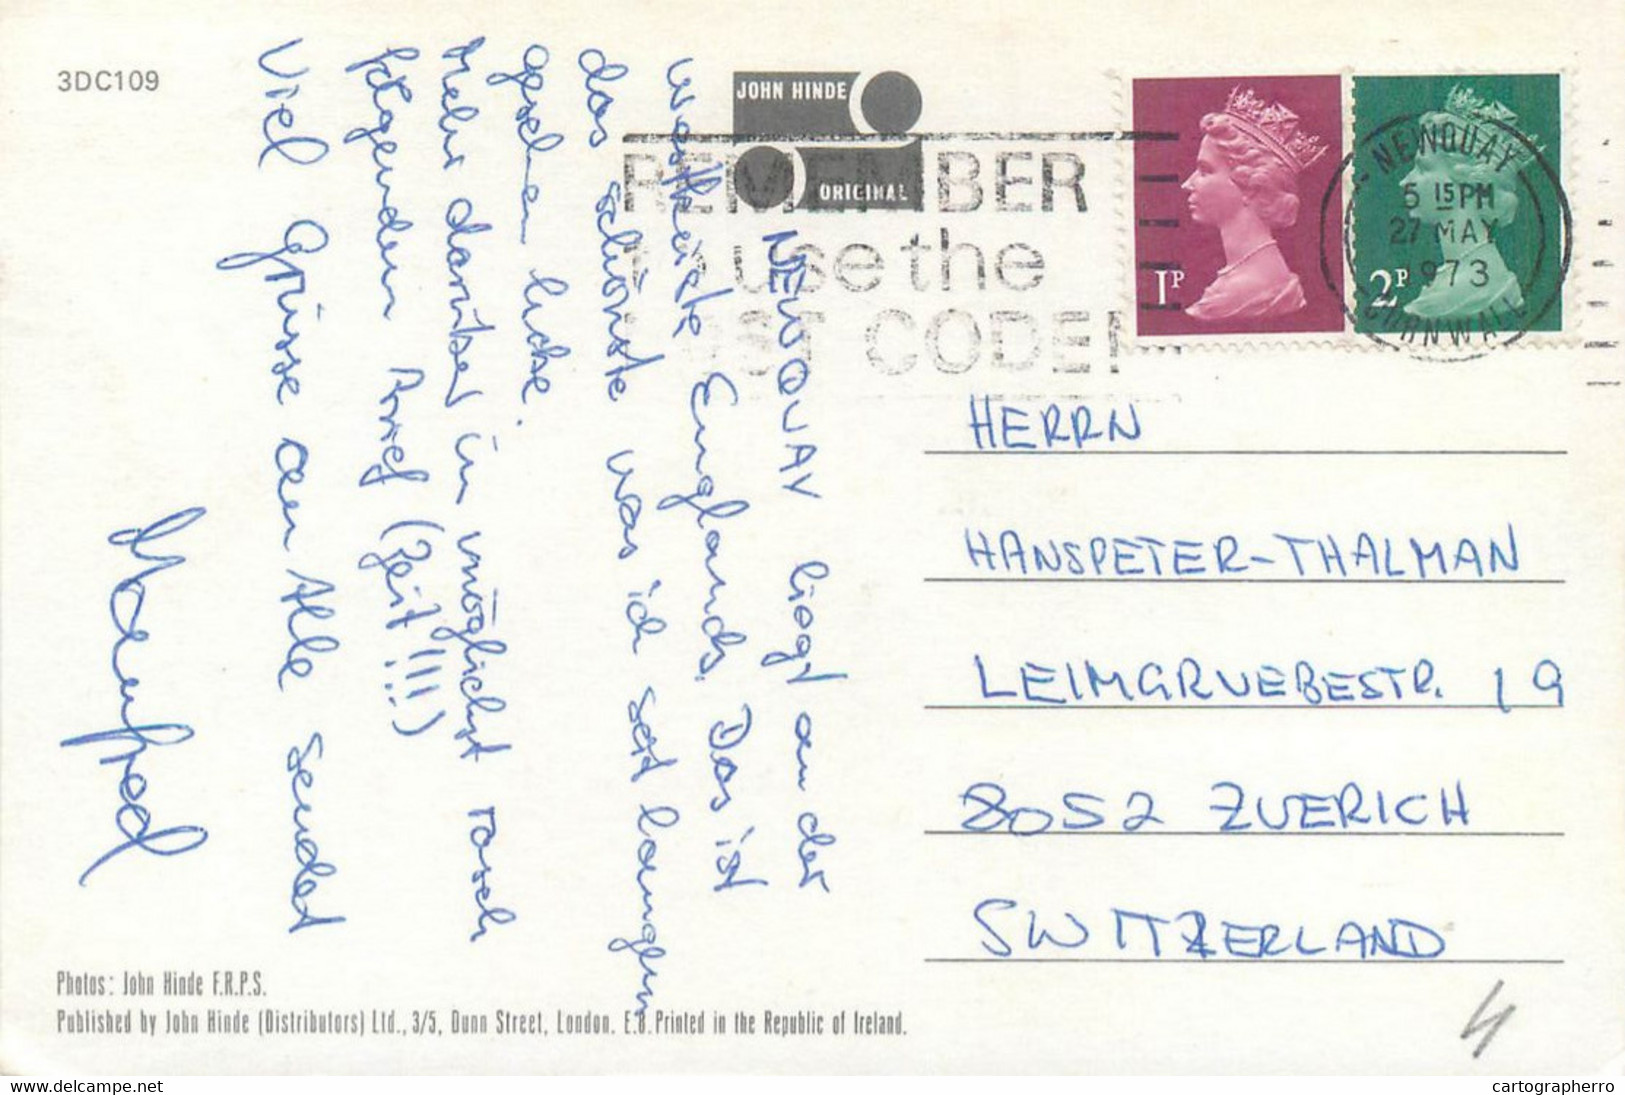 3DC109
JOHN HINDE
ORIGINAL
REMEMBER
to use the
POST CODE!
1P
2P
NEWQUAY
5 15 PM
27 MAY
1973
CORNWALL
NEWQUAY liegt an der
Westküste Englands. Das ist
das schönste was ich seit langem
gesehen habe.
Mehr darüber in möglichst rasch
folgendem Brief (Zeit!!!)
Viel Grüsse an Alle sendet
Manfred
HERRN
HANSPETER-THALMAN
LEIMGRUEBESTR. 19
8052 ZUERICH
SWITZERLAND
4
Photos: John Hinde F.R.P.S.
Published by John Hinde (Distributors) Ltd., 3/5, Dunn Street, London. E.8. Printed in the Republic of Ireland.
www.delcampe.net
cartographerro